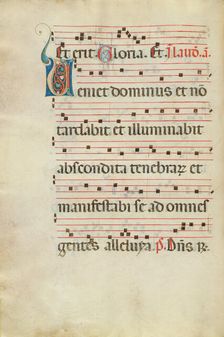 Et erit. Gloria. Et
Veniet dominus et nō
tardabit et illuminabit
abscondita tenebrarum et
manifestabit se ad omnes
gentes alleluya. P. Dn̄s